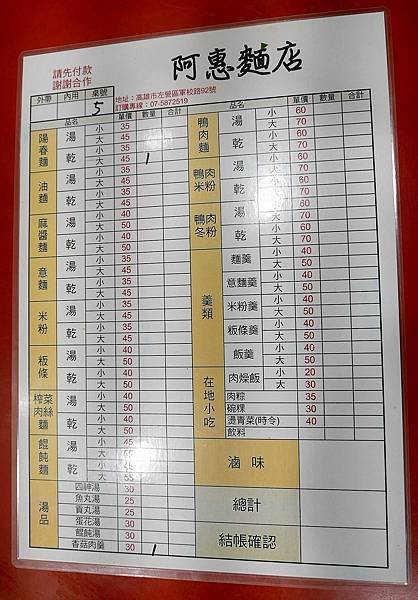 請先付款
謝謝合作
阿惠麵店
地址：高雄市左營區軍校路92號
訂購專線：07-5872519
外帶 內用 桌號 5
品名 單價 數量 合計
陽春麵 湯 小 35
大 45
乾 小 35
大 45 1
油麵 湯 小 35
大 45
乾 小 35
大 45
麻醬麵 湯 小 40
大 50
乾 小 40
大 50
意麵 湯 小 35
大 45
乾 小 35
大 45
米粉 湯 小 35
大 45
乾 小 35
大 45
粄條 湯 小 40
大 50
乾 小 40
大 50
榨菜肉絲麵 湯 小 40
大 50
乾 小 40
大 50
餛飩麵 湯 小 45
大 55
乾 小 45
大 55
湯品 四神湯 30
魚丸湯 25
貢丸湯 25
蛋花湯 30
餛飩湯 30
香菇肉羹 30 1
品名 單價 數量 合計
鴨肉麵 湯 小 60
大 70
乾 小 60
大 70
鴨肉米粉 湯 小 60
大 70
乾 小 60
大 70
鴨肉冬粉 湯 小 60
大 70
乾 小 60
大 70
羹類 麵羹 小 40
大 50
意麵羹 小 40
大 50
米粉羹 小 40
大 50
粄條羹 小 40
大 50
飯羹 小 40
大 50
在地小吃 肉燥飯 小 20
大 30
肉粽 35
碗粿 30
燙青菜(時令) 40
飲料
滷味
總計
結帳確認